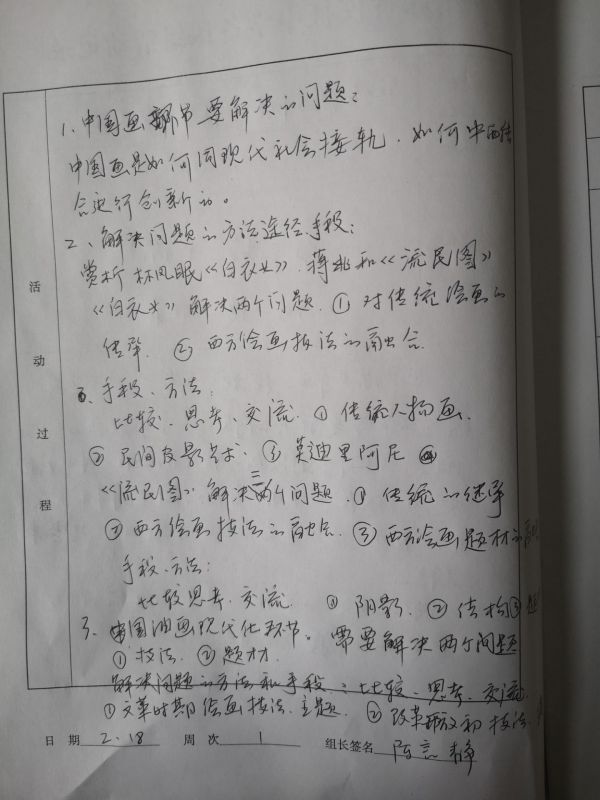 活动过程
1、中国画环节要解决的问题：
中国画是如何同现代社会接轨，如何中西结
合进行创新的。
2、解决问题的方法途径手段：
赏析 林风眠《白衣女》、蒋兆和《流民图》
《白衣女》解决两个问题。① 对传统绘画的
传承。② 西方绘画技法的融合。
手段、方法：
比较、思考、交流。① 传统人物画。
② 民间皮影艺术。③ 莫迪里阿尼
《流民图》解决三个问题。① 传统的继承
② 西方绘画技法的融合。③ 西方绘画题材的
手段、方法：
比较思考、交流。① 阴影。② 结构③
3、中国油画现代化环节。需要解决两个问题
① 技法。② 题材。
解决问题的方法和手段：比较、思考、交流
① 文革时期绘画技法、主题。② 改革开放初技法
日 期 2.18 周 次 1 组长签名 陈 静